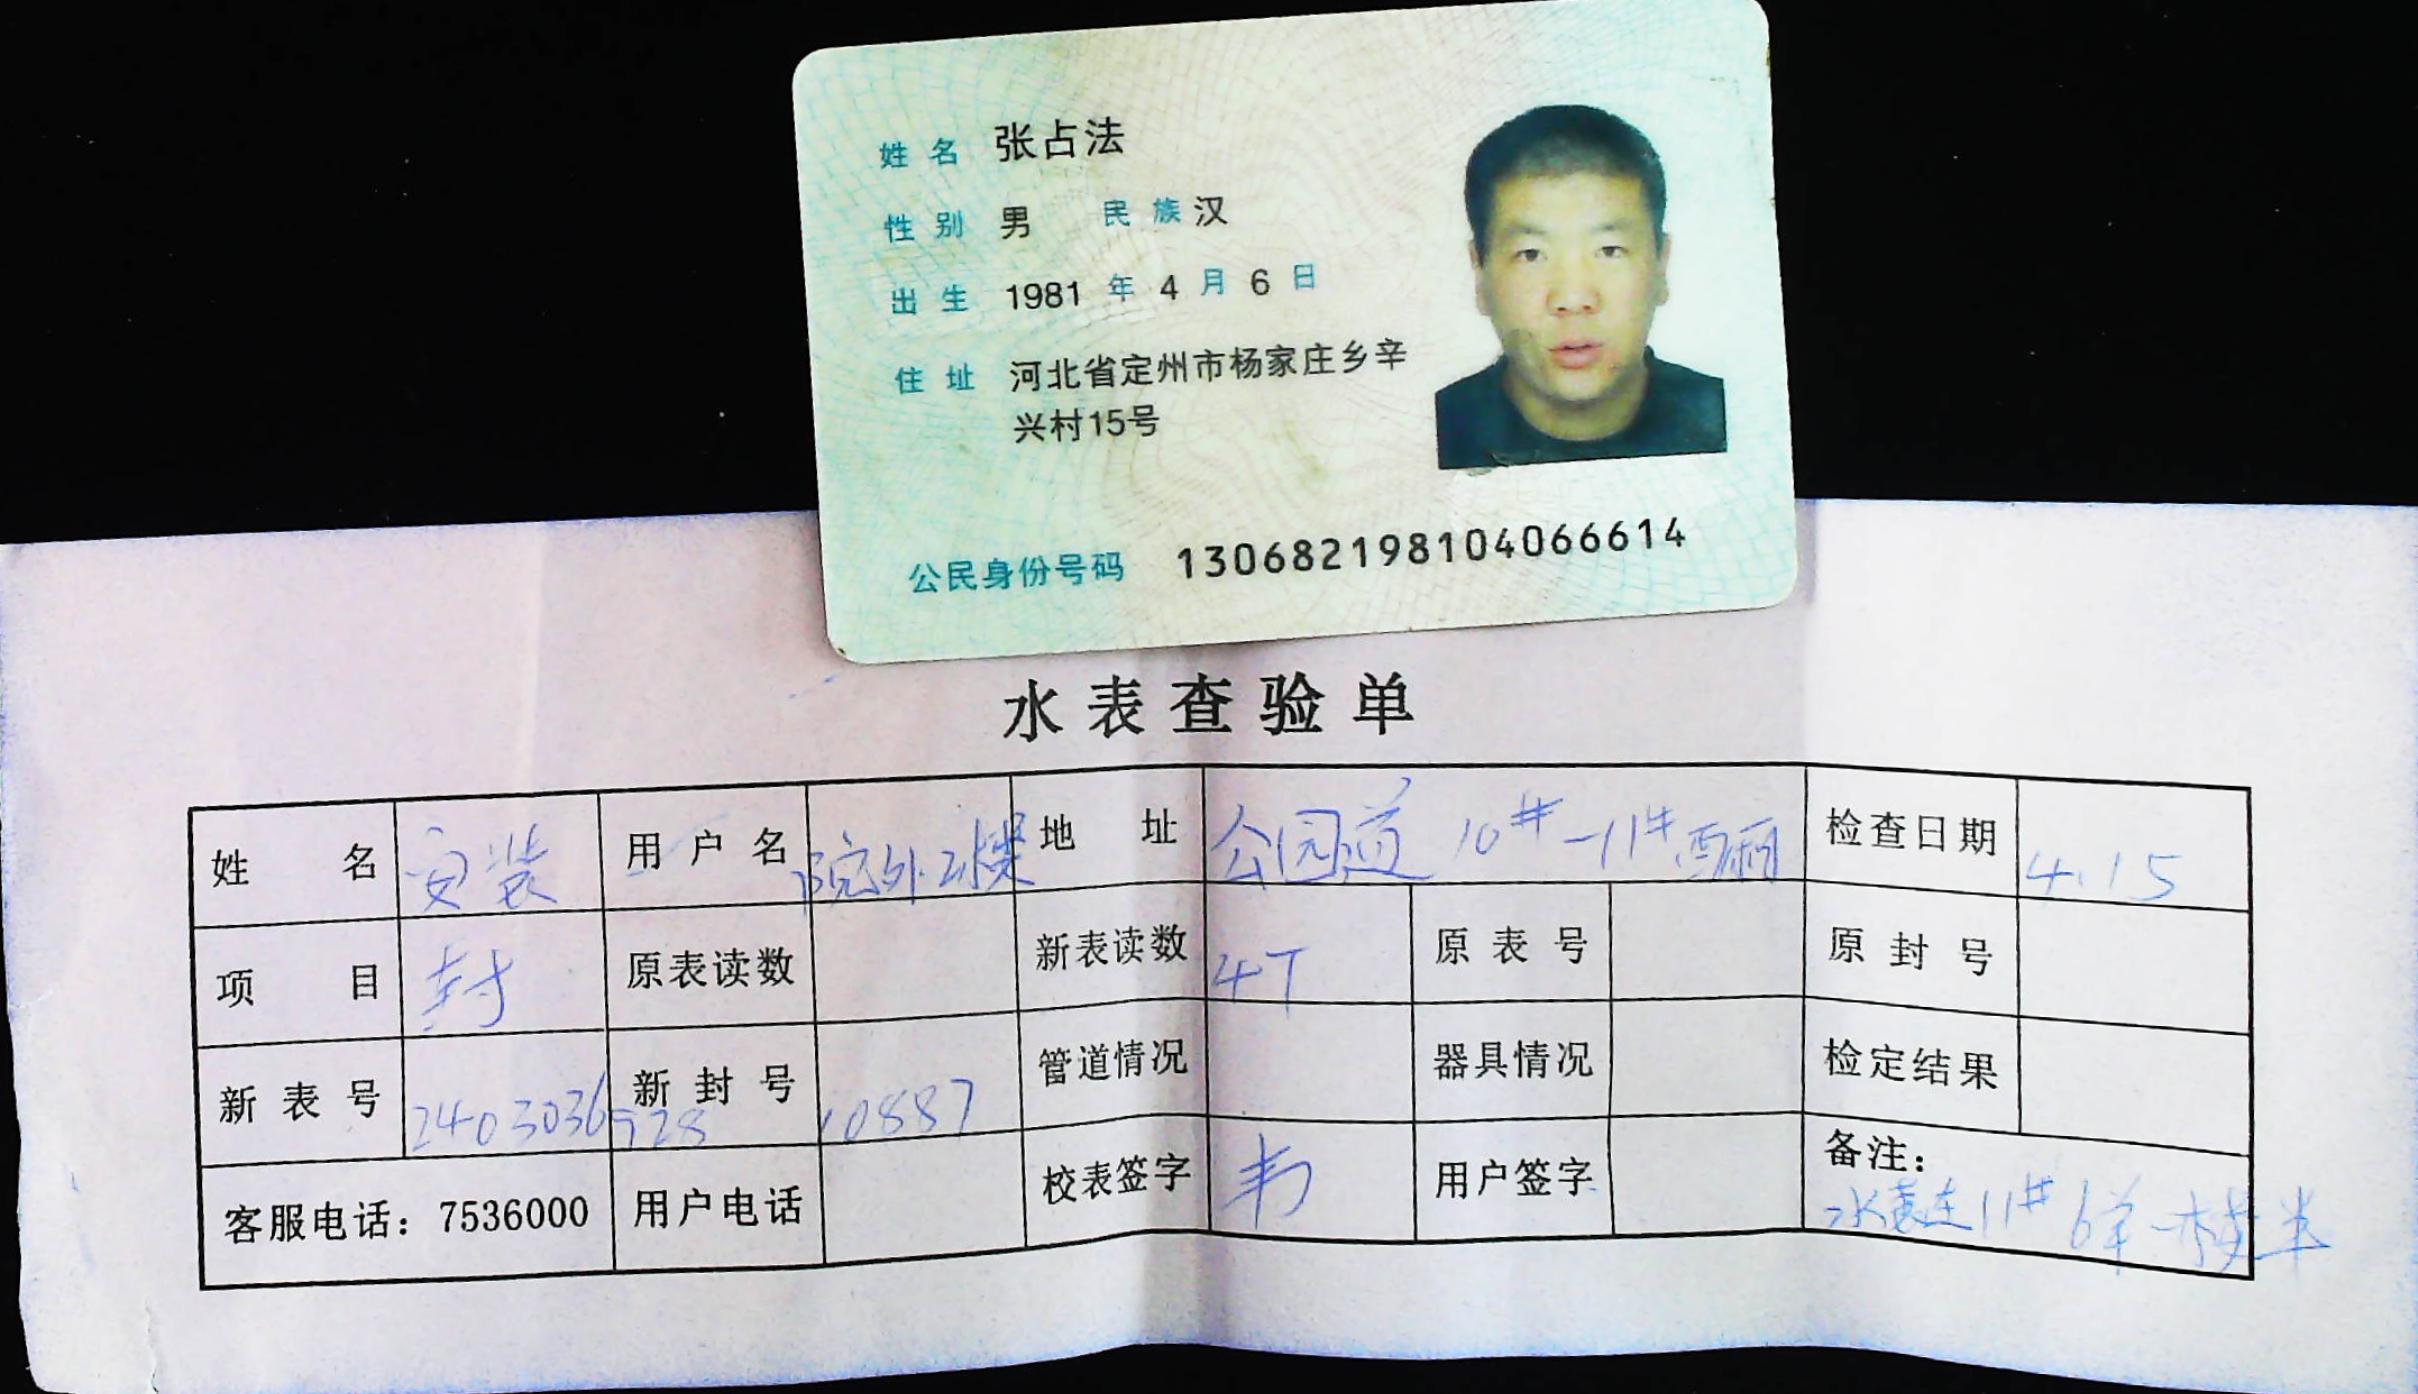 姓名 张占法
性别 男 民族 汉
出生 1981 年 4 月 6 日
住址 河北省定州市杨家庄乡辛
兴村15号
公民身份号码 130682198104066614
水表查验单
姓名 安装 用户名 院外 地址 公园道 10#-11# 检查日期 4.15
项目 封 原表读数 新表读数 4T 原表号 原封号
新表号 2403036928 新封号 10887 管道情况 器具情况 检定结果
客服电话：7536000 用户电话 校表签字 韦 用户签字 备注：
水表在11# 6单一楼半